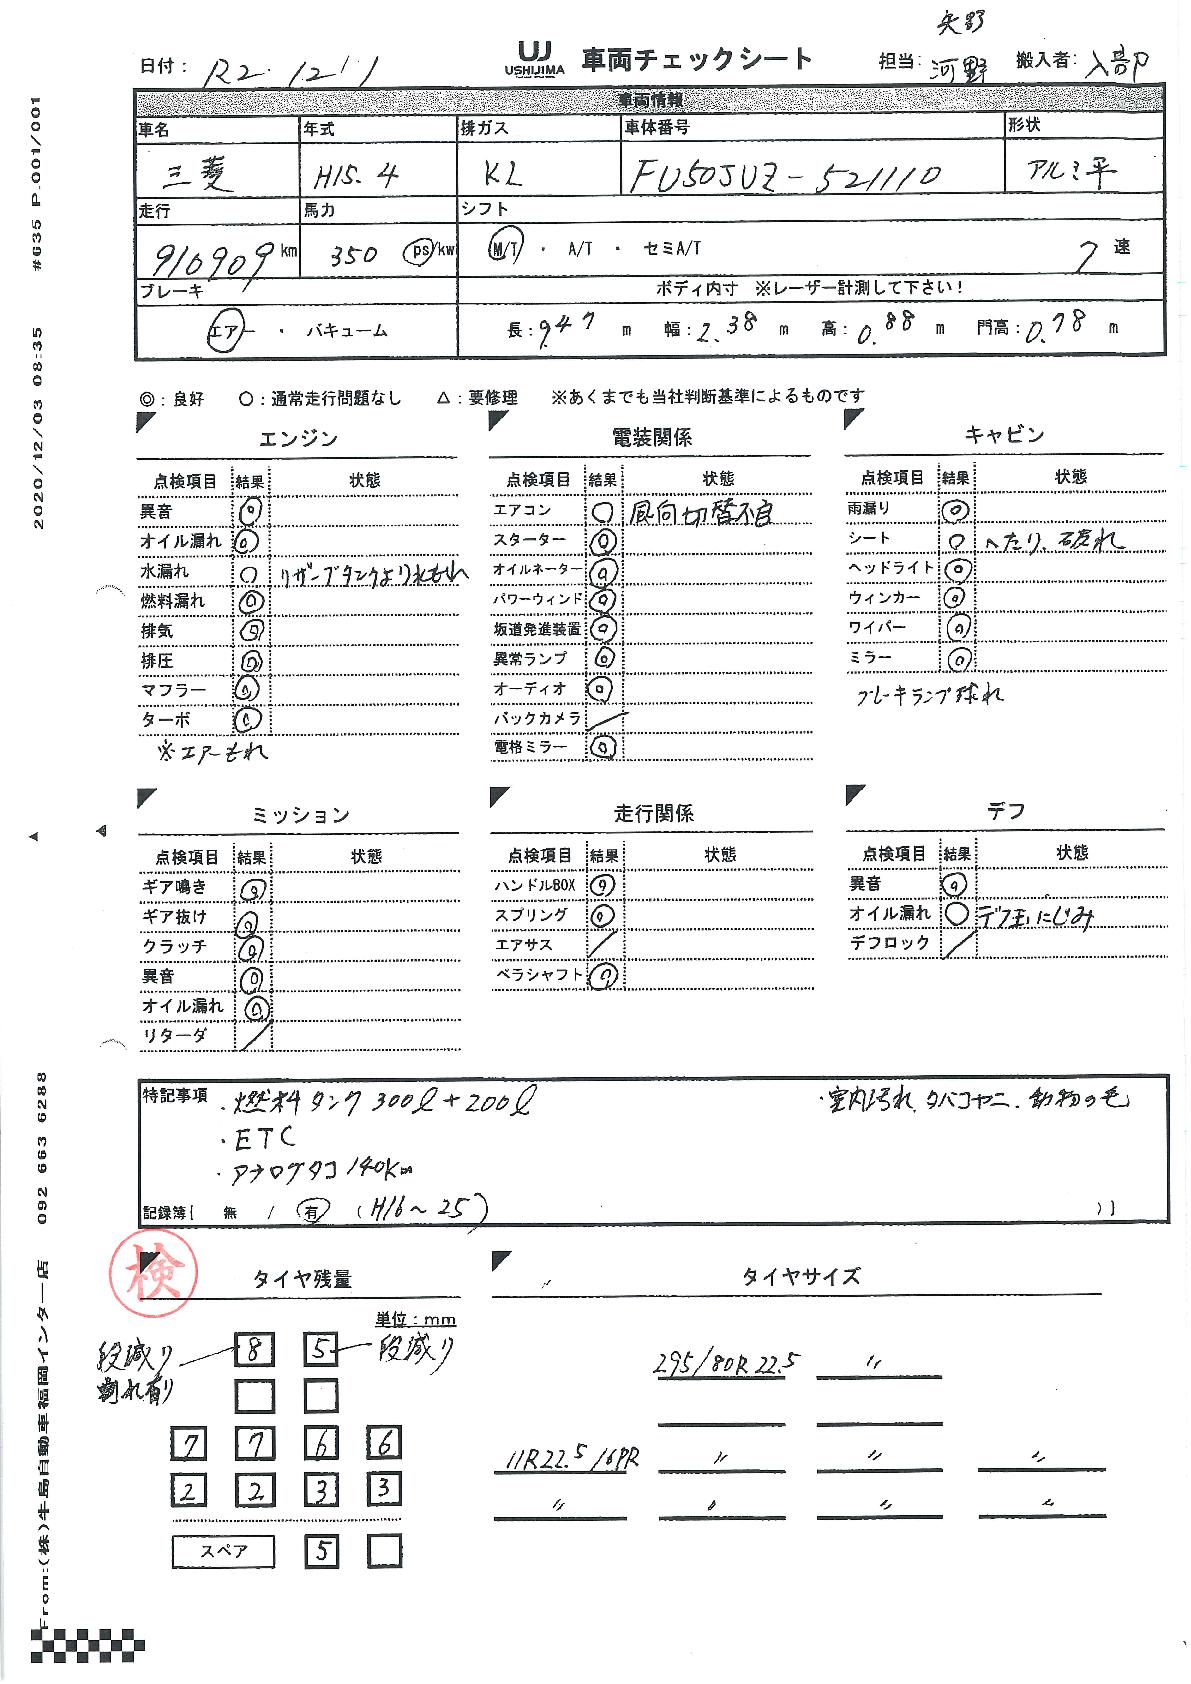 矢野
日付： R2.12.1 UJ USHIJIMA 車両チェックシート 担当：河野 搬入者：入部
車両情報
車名 年式 排ガス 車体番号 形状
三菱 H15.4 KL FU50JUZ-521110 アルミ平
走行 馬力 シフト
910909km 350 ps/kw M/T ・ A/T ・ セミA/T 7速
ブレーキ ボディ内寸 ※レーザー計測して下さい！
エアー ・ バキューム 長：9.47 m 幅：2.38 m 高：0.88 m 門高：0.78 m
◎：良好 ○：通常走行問題なし △：要修理 ※あくまでも当社判断基準によるものです
エンジン
点検項目 結果 状態
異音 ◎
オイル漏れ ◎
水漏れ ○ リザーブタンクより水もれ
燃料漏れ ◎
排気 ◎
排圧 ◎
マフラー ◎
ターボ ◎
※エアーもれ
電装関係
点検項目 結果 状態
エアコン ○ 風向切替不良
スターター ◎
オイルネーター ◎
パワーウィンド ◎
坂道発進装置 ◎
異常ランプ ◎
オーディオ ◎
バックカメラ ／
電格ミラー ◎
キャビン
点検項目 結果 状態
雨漏り ◎
シート ○ へたり、破れ
ヘッドライト ◎
ウィンカー ◎
ワイパー ◎
ミラー ◎
ブレーキランプ球れ
ミッション
点検項目 結果 状態
ギア鳴き ◎
ギア抜け ◎
クラッチ ◎
異音 ◎
オイル漏れ ◎
リターダ ／
走行関係
点検項目 結果 状態
ハンドルBOX ◎
スプリング ◎
エアサス ／
ペラシャフト ◎
デフ
点検項目 結果 状態
異音 ◎
オイル漏れ ○ デフ玉にじみ
デフロック ／
特記事項 ・燃料タンク 300ℓ+200ℓ ・室内汚れ、タバコヤニ、動物の毛
・ETC
・アナログタコ 140km
記録簿〔 無 / 有 （H16～25） ）〕
検
タイヤ残量
単位：mm
段減り 8 5 段減り
割れ有り
7 7 6 6
2 2 3 3
スペア 5
タイヤサイズ
295/80R22.5 〃
11R22.5/16PR 〃 〃 〃
〃 〃 〃 〃
#635 P.001/001
2020/12/03 08:35
092 663 6288
From:(株)牛島自動車福岡インター店